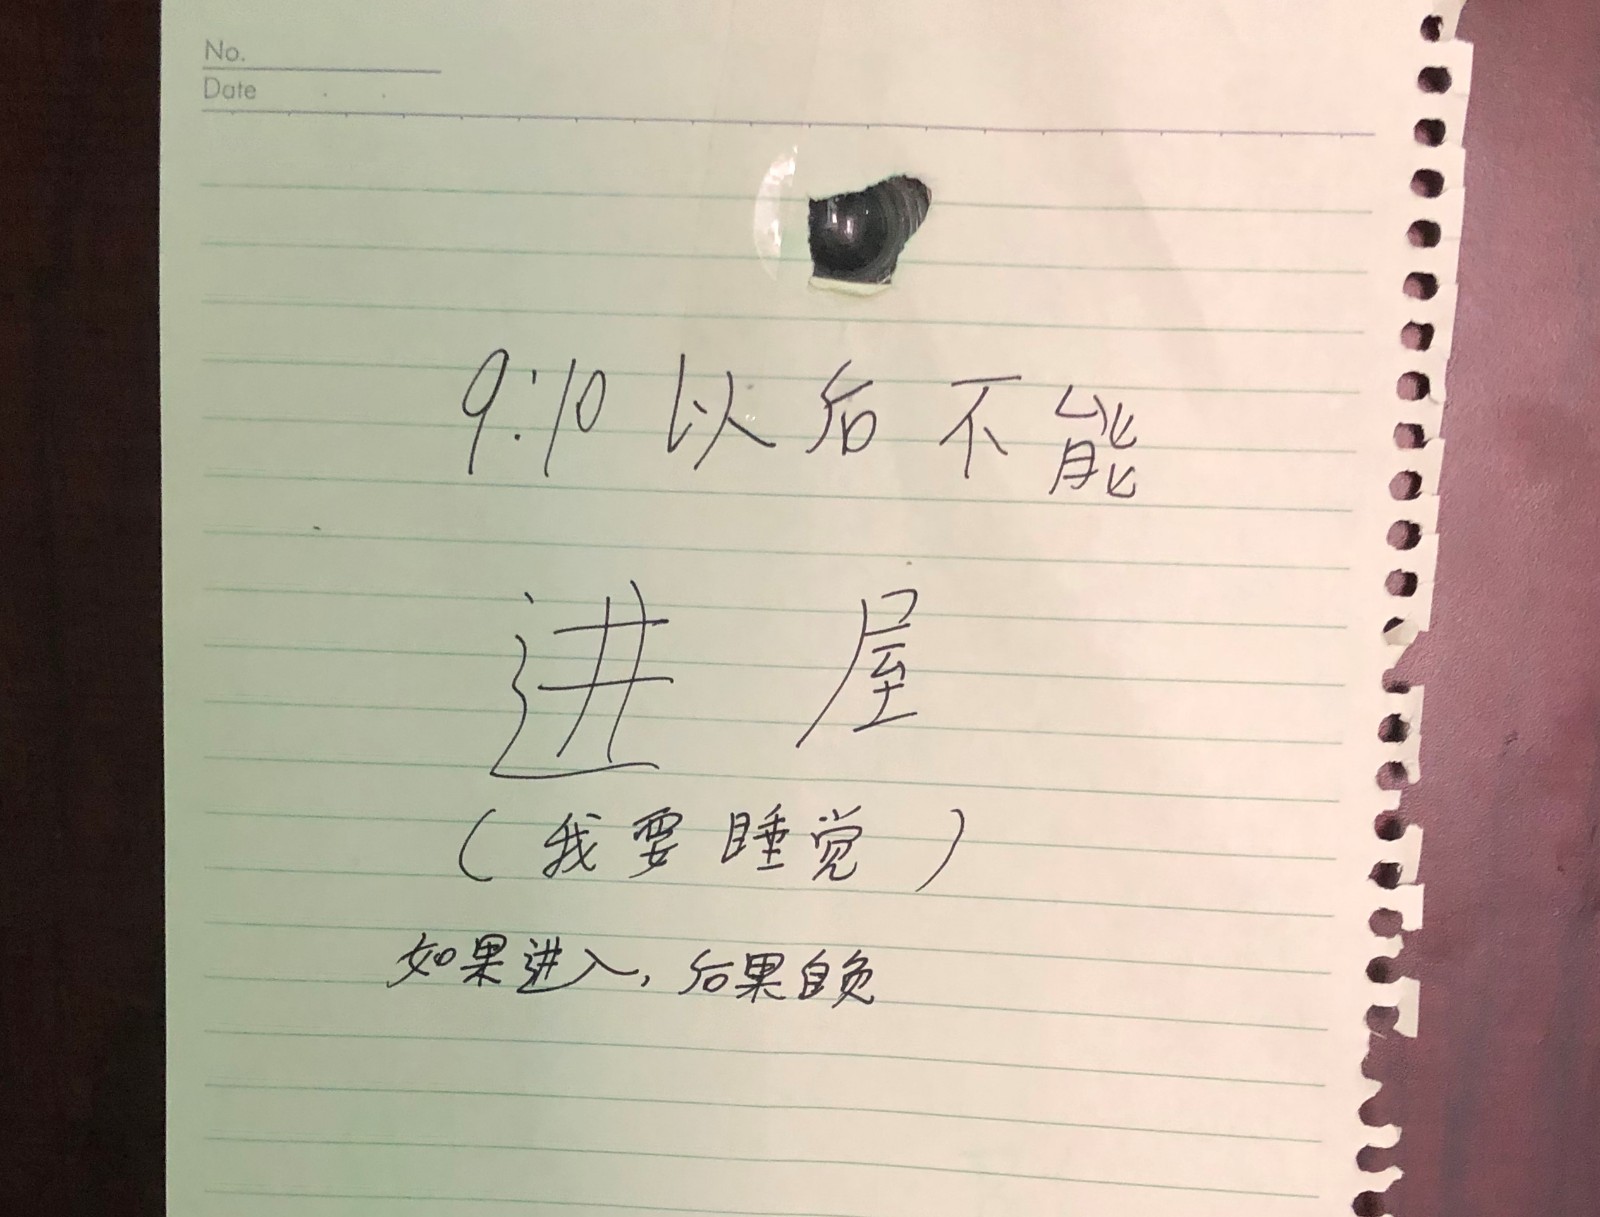 No.
Date
9:10以后不能
进屋
(我要睡觉)
如果进入,后果自负